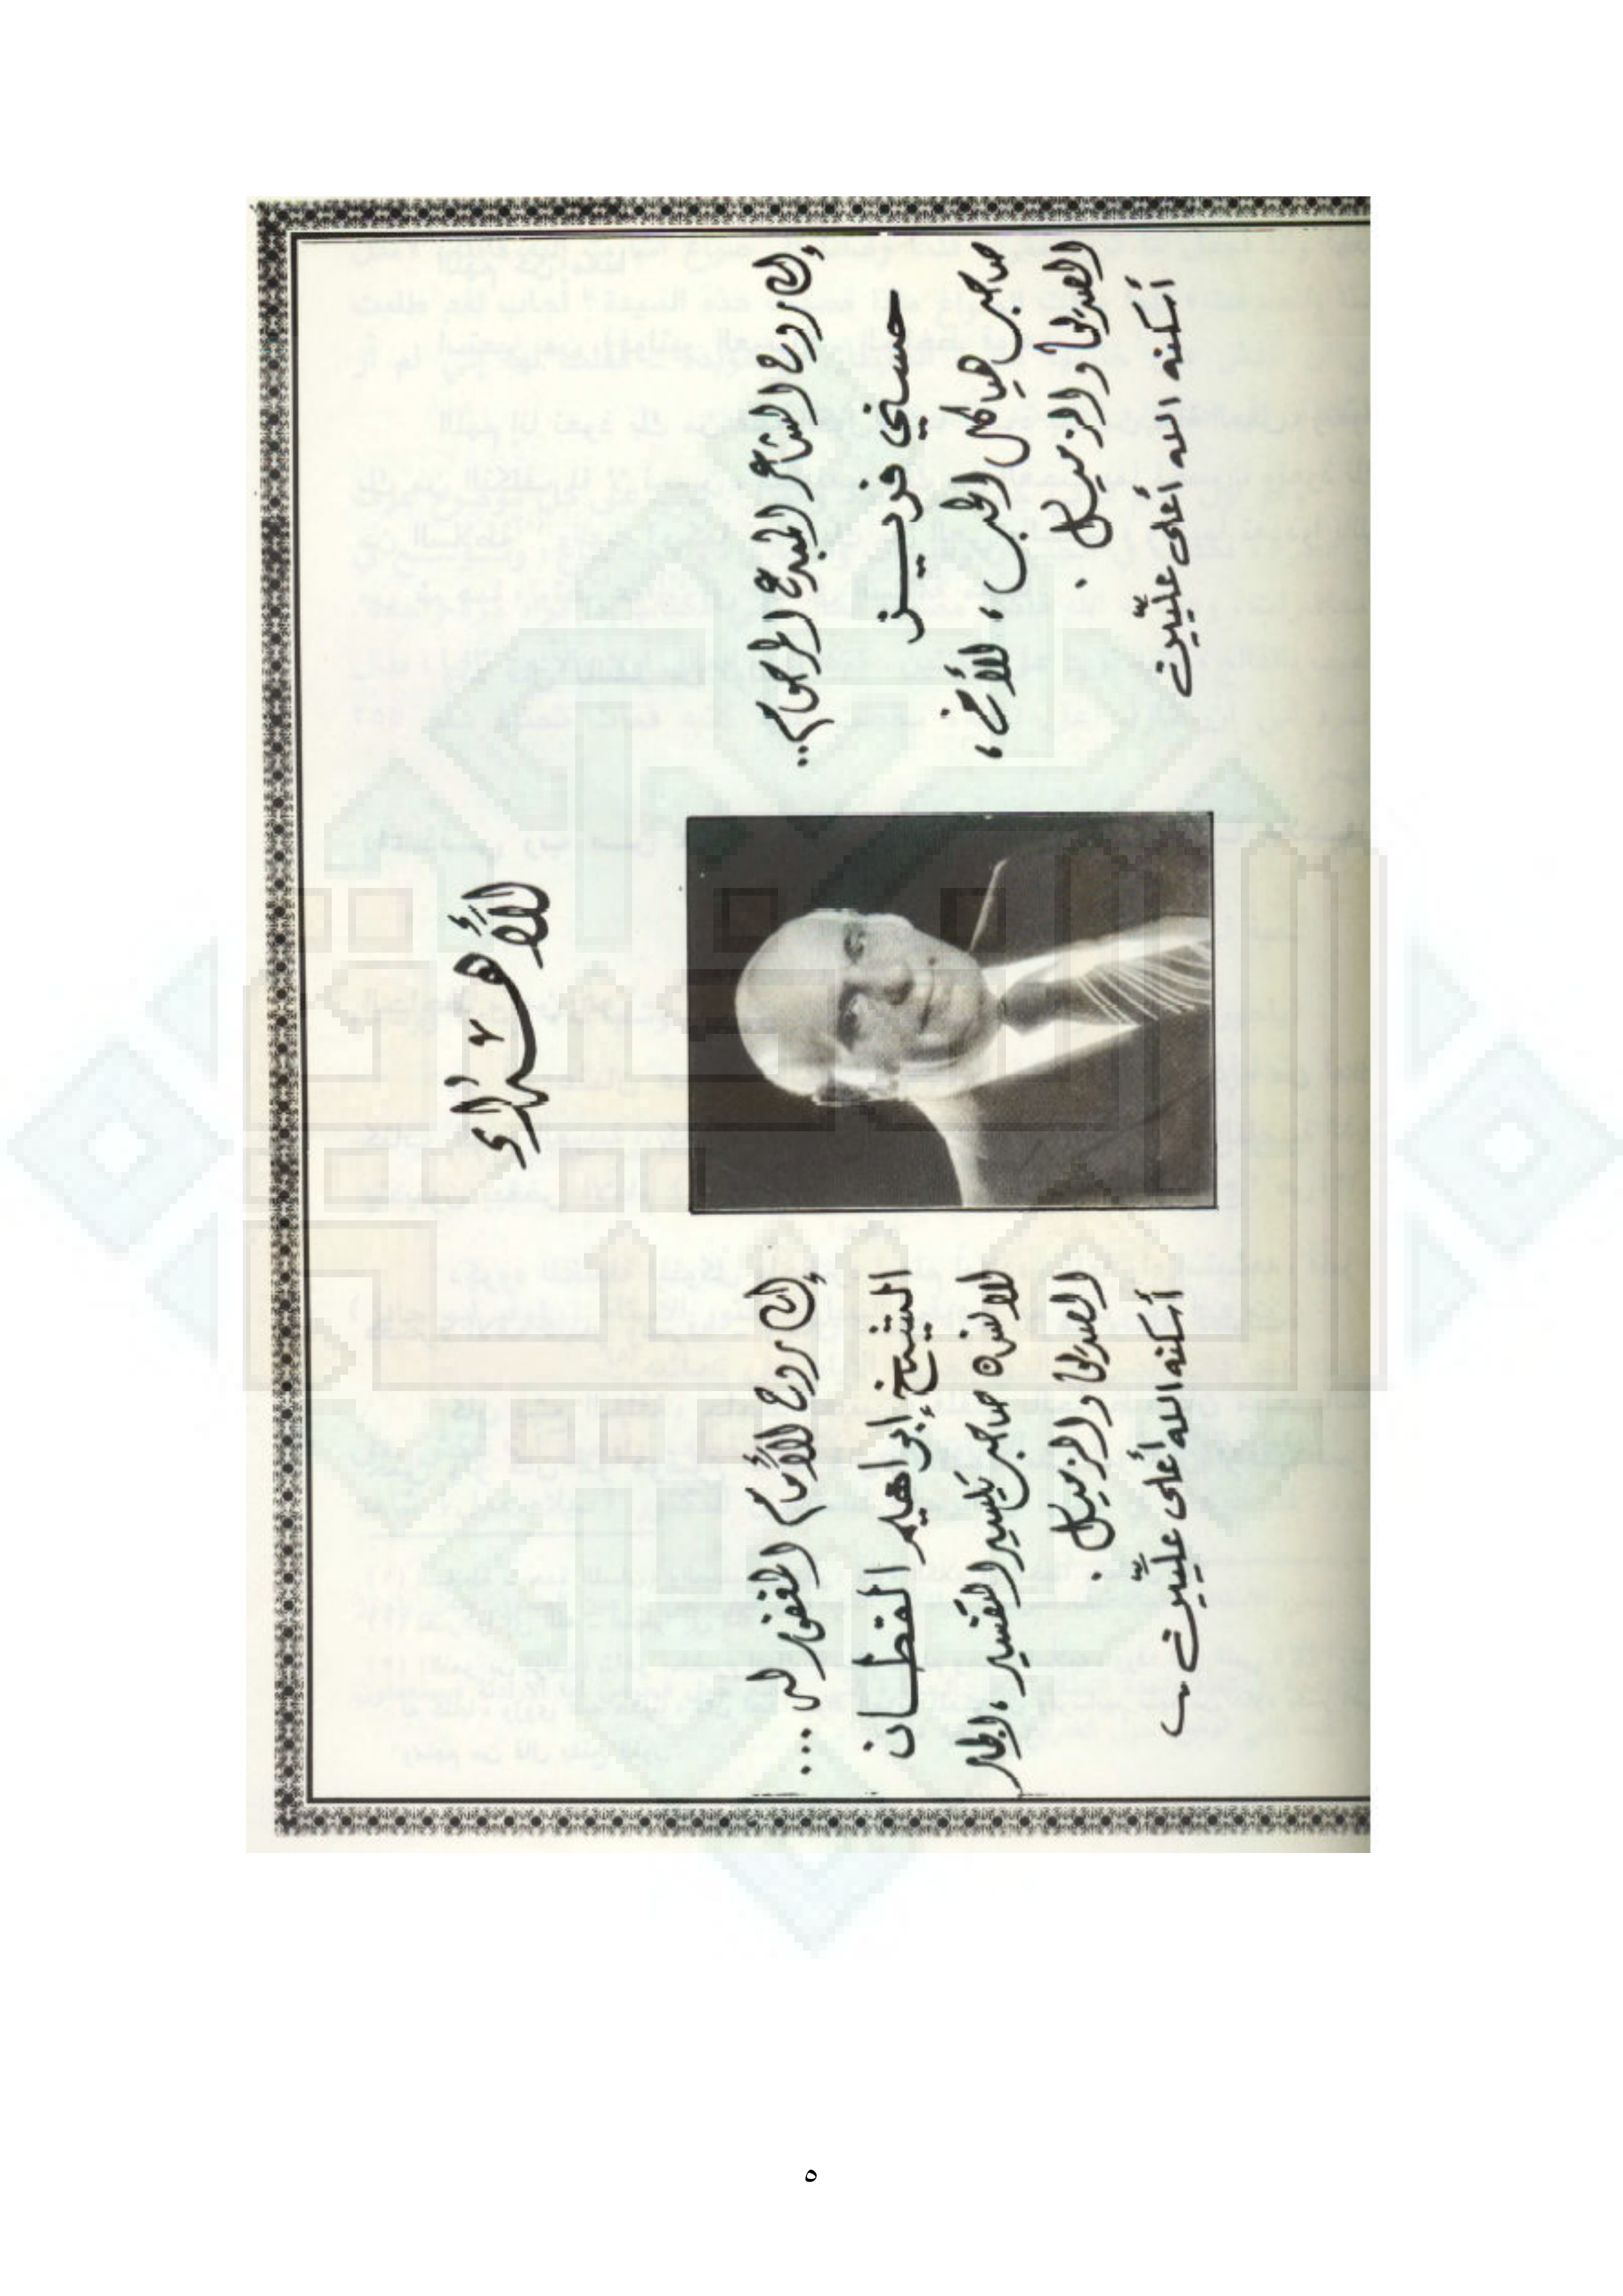 الإهداء
إلى روح الشاعر المبدع المرحوم...
حسني فريز
صاحب هياكل الحب، الأخ،
الصديق والزميل.
أسكنه الله أعلى عليّين
إلى روح الإمام المغفور له ...
الشيخ إبراهيم القطان
صاحب تيسير التفسير، الجار
الصديق والزميل.
أسكنه الله أعلى عليّين
٥